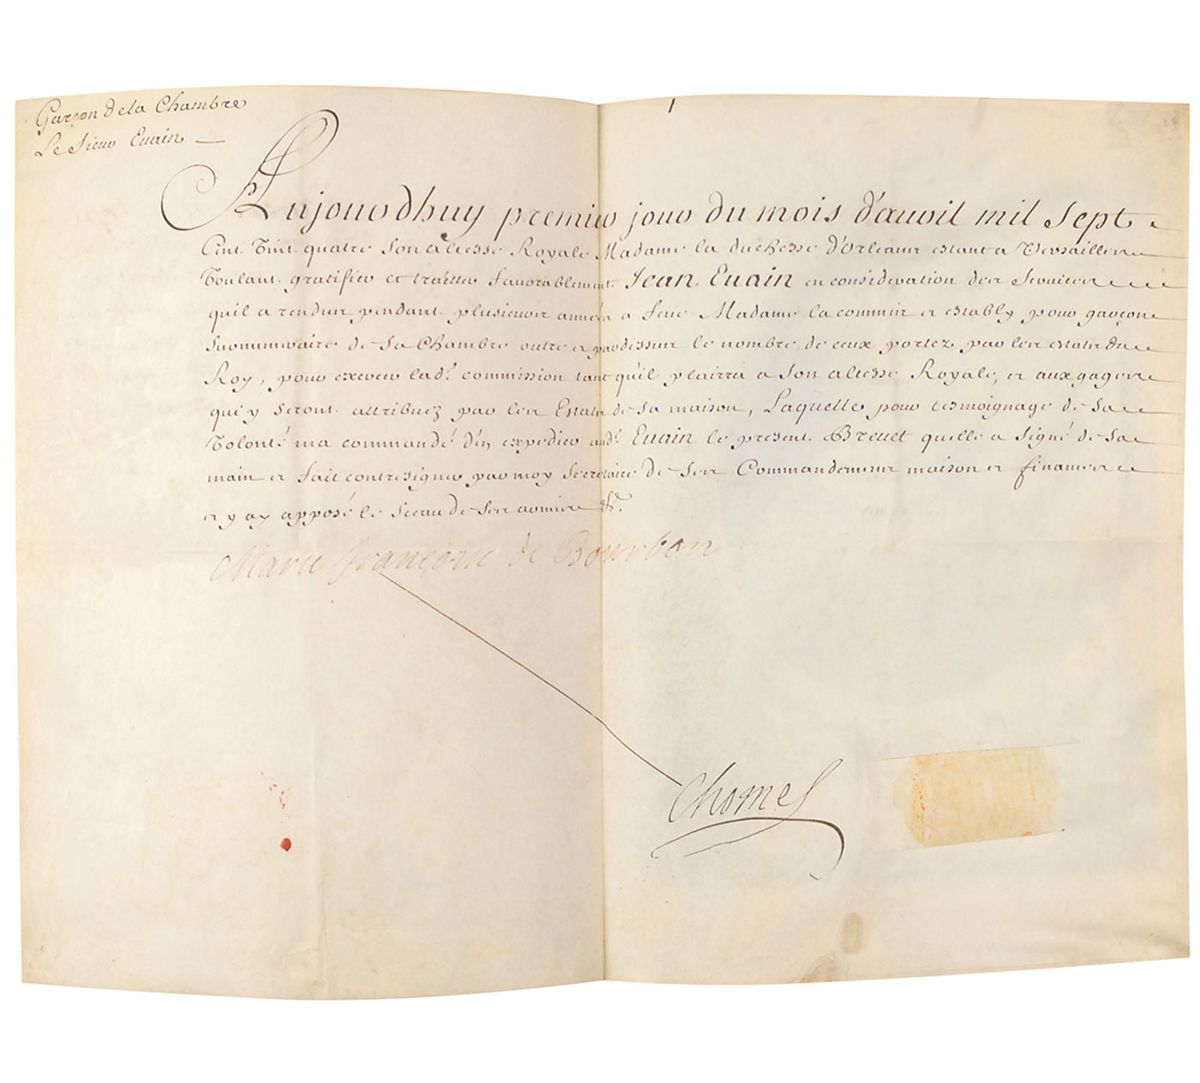 Garçon de la Chambre
Le Sieur Euain
Aujourdhuy premier jour du mois d'avril mil sept
Cent Vint quatre Son altesse Royale Madame la duchesse d'Orleans estant a Versailles
Voulant gratifier et traitter favorablement Jean Euain en consideration des services
quil a rendus pendant plusieurs années a feüe Madame la commis et estably pour garçon
surnumeraire de sa Chambre outre et pardessus le nombre de ceux portez par les estats du
Roy, pour exercer lad.e commission tant qu'il plairra a Son altesse Royale, et aux gages
qui y seront attribuez par les Estats de sa maison, Laquelle pour tesmoignage de sa
Volonté ma commandé d'en expedier aud.t Euain le present Brevet quelle a signé de sa
main et fait contresigner par moy Secretaire de ses Commandemens maison et finances
et y ay apposé le sceau de ses armes &.
Marie Françoise de Bourbon
Chomel